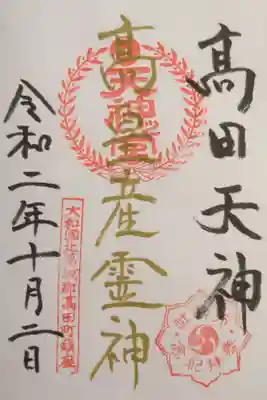 髙田天神
髙皇産霊神
大和國北葛城郡高田町鎮座
令和二年十月二日